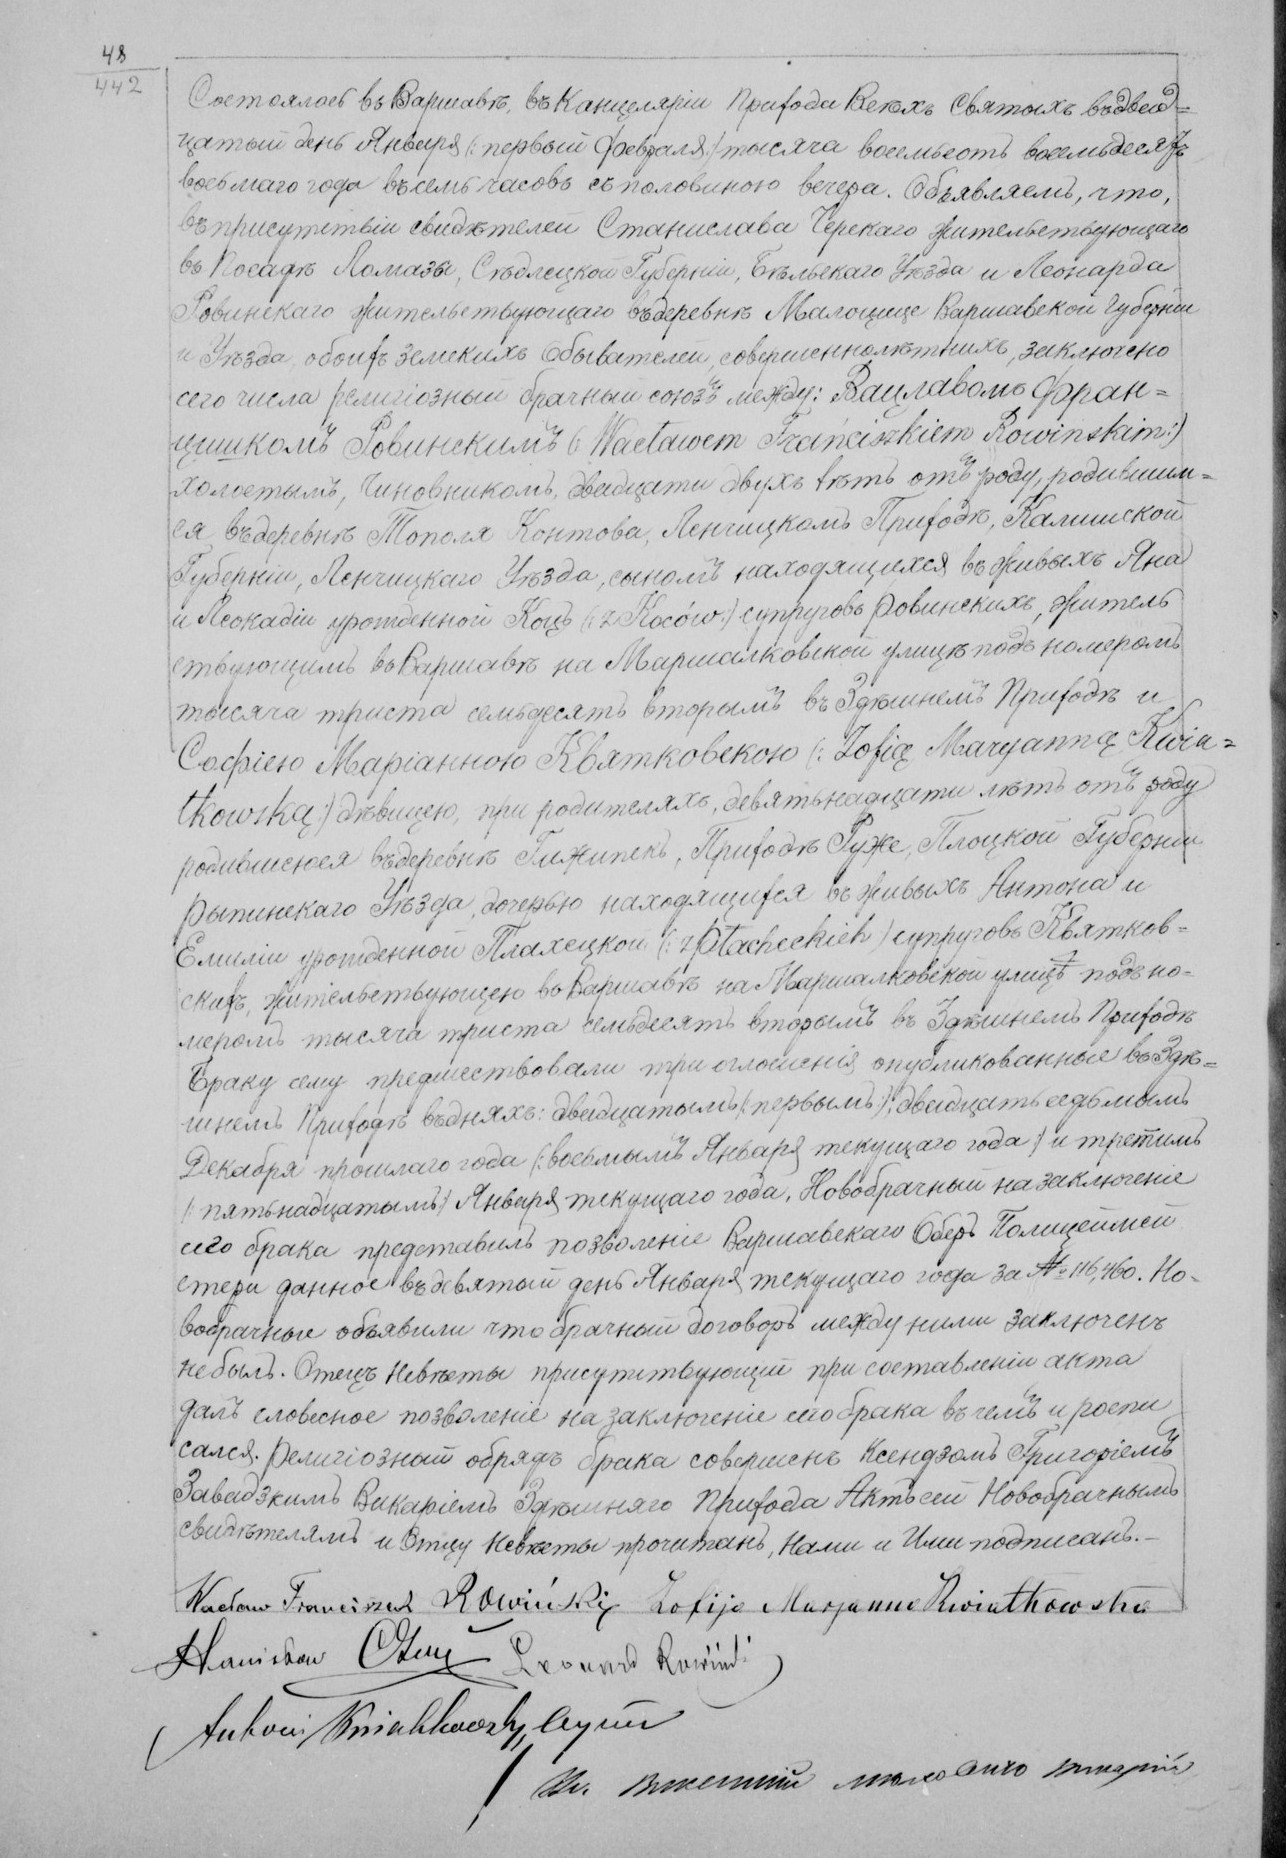 48
442
Состоялось въ Варшавѣ, въ Канцеляріи Прихода Всѣхъ Святыхъ въ двад=
цатый день Января (: первый Февраля:) тысяча восемьсотъ восемьдесятъ
восьмаго года въ семь часовъ съ половиною вечера. Объявляемъ, что,
въ присутствіи свидѣтелей Станислава Черскаго жительствующаго
въ Посадѣ Ломазы, Сѣдлецкой Губерніи, Бѣльскаго Уѣзда и Леонарда
Ровинскаго жительствующаго въ деревнѣ Малошице Варшавской Губерніи
и Уѣзда, обоихъ земскихъ Обывателей, совершеннолѣтнихъ, заключено
сего числа религіозный брачный союзъ между: Вацлавомъ Фран=
цишкомъ Ровинскимъ (: Wacławem Franciszkiem Rowinskim:)
холостымъ, Чиновникомъ, двадцати двухъ лѣтъ отъ роду, родившим=
ся въ деревнѣ Тополя Контова, Ленчицкомъ Приходѣ, Калишской
Губерніи, Ленчицкаго Уѣзда, сыномъ находящихся въ живыхъ Яна
и Леокадіи урожденной Коцъ (: z Koców:) супруговъ Ровинскихъ, житель
ствующимъ въ Варшавѣ на Маршалковской улицѣ подъ номеромъ
тысяча триста семьдесятъ вторымъ въ Здѣшнемъ Приходѣ и
Софіею Маріанною Квятковскою (: Zofią Maryanną Kwia=
tkowską:) дѣвицею, при родителяхъ, девятьнадцати лѣтъ отъ роду
родившеюся въ деревнѣ Гижинекъ, Приходѣ Руже, Плоцкой Губерніи
Рыпинскаго Уѣзда, дочерью находящихся въ живыхъ Антона и
Емиліи урожденной Плахецкой (: z Płacheckich) супруговъ Квятков=
скихъ, жительствующею въ Варшавѣ на Маршалковской улицѣ подъ но=
меромъ тысяча триста семьдесятъ вторымъ въ Здѣшнемъ Приходѣ
Браку сему предшествовали три оглошенія опубликованные въ Здѣ=
шнемъ Приходѣ въ дняхъ: двадцатымъ (: первымъ:), двадцать седьмымъ
Декабря прошлаго года (: восьмымъ Января текущаго года:) и третимъ
(: пятьнадцатымъ) Января текущаго года. Новобрачный на заключеніе
сего брака представилъ позволеніе Варшавскаго Оберъ Полицеймей
стера данное въ девятый день Января текущаго года за № 116,460. Но=
вобрачные объявили что брачный договоръ между ними заключенъ
не былъ. Отецъ Невѣсты присутствующій при составленіи акта
далъ словесное позволеніе на заключеніе сего брака въ чемъ и роспи
сался. Религіозный обрядъ брака совершенъ Ксендзомъ Григоріемъ
Завадзкимъ Викаріемъ Здѣшняго Прихода Актъ сей Новобрачнымъ
свидѣтелямъ и Отцу Невѣсты прочитанъ, Нами и Ими подписанъ.–
Wacław Franciszek Rowiński Zofija Marjanna Kwiatkowska
Stanisław Leonard Rowiński
Antoni Kwiatkowski,